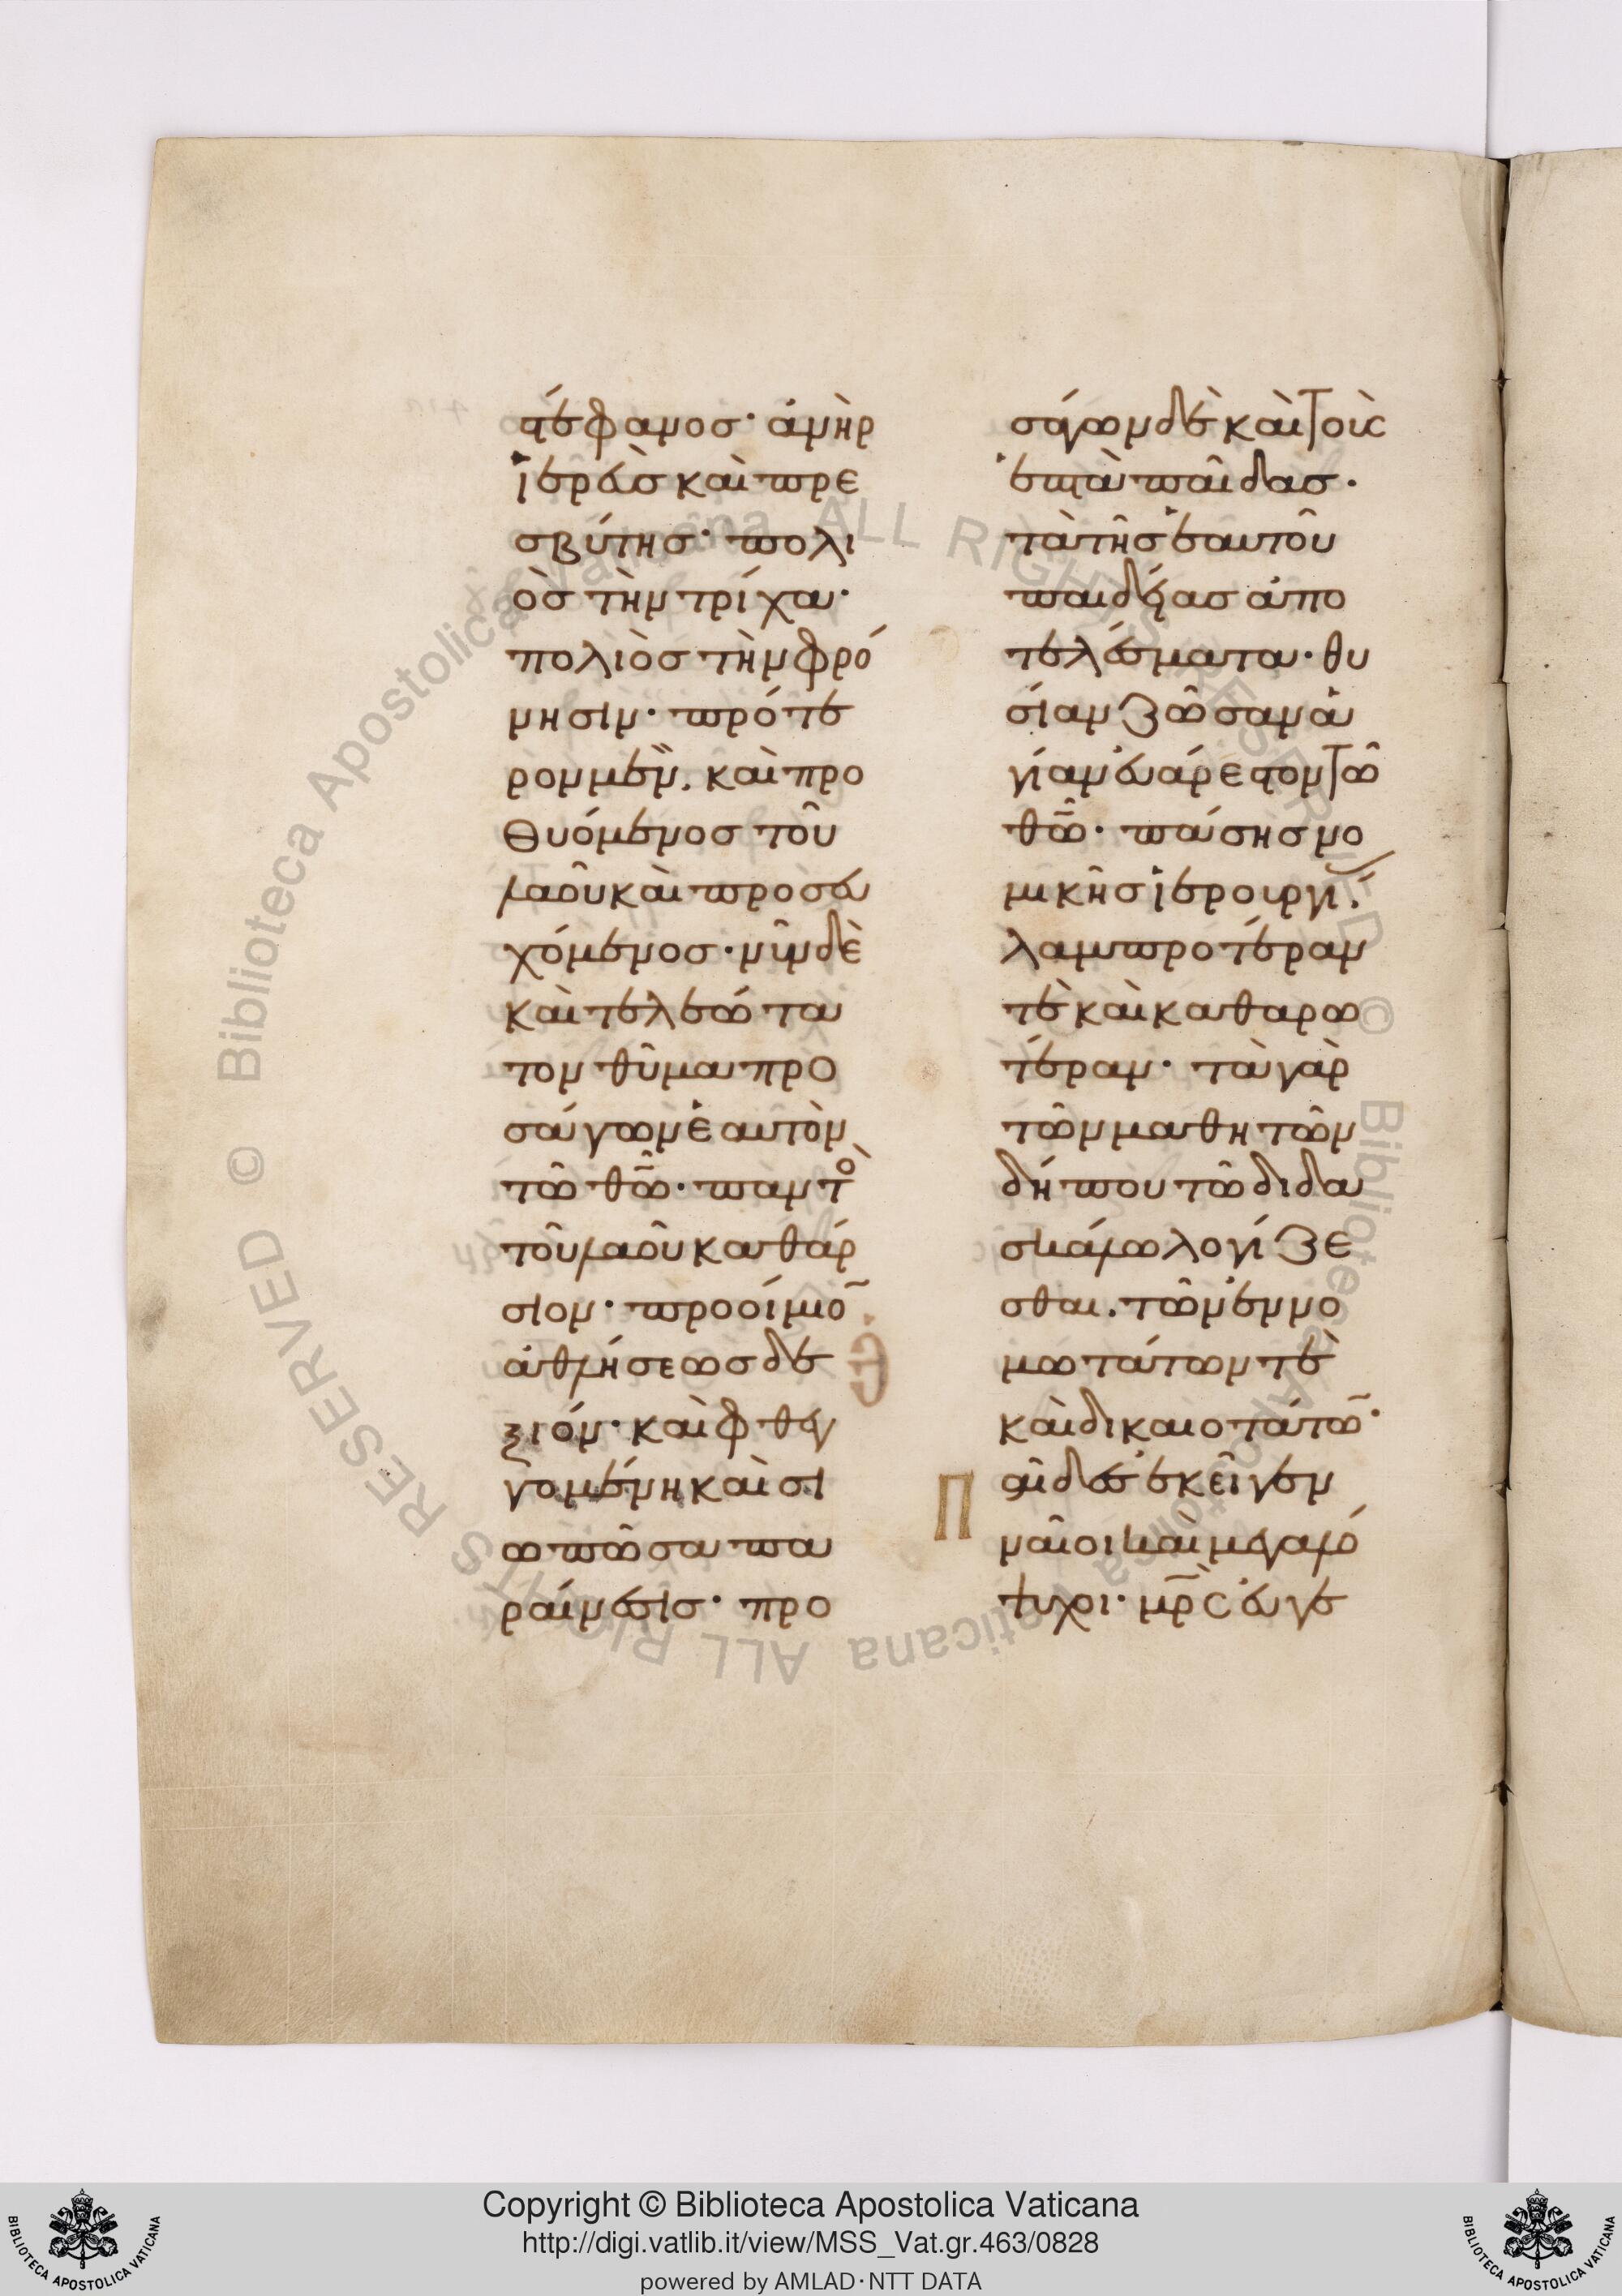 τέφανος· ἀνὴρ
ἱερεὺς καὶ πρε
σβύτης· πολι
ὸς τὴν τρίχα·
πολιὸς τὴν φρό
νησιν· πρότε
ρον μὲν, καὶ προ
θυόμενος τοῦ
λαοῦ καὶ προσευ
χόμενος· νῦν δὲ
καὶ τελεώτα
τον θῦμα προ
σάγων ἑαυτὸν
τῶ θῶ· παντὸ
τοῦ λαοῦ καθάρ
σιον· προοίμιο̃
ἀθλήσεως δε
ξιόν· καὶ φθεγ
γομένη καὶ σι
ωπῶσα πα
ραίνεσις· προ
σάγων δὲ καὶ τοὺς
ἑπτὰ παῖδας·
τὰ τῆς ἑαυτοῦ
παιδείας ἀπο
τελέσματα· θυ
σίαν ζῶσαν ἁ
γίαν εὐάρεστον τῶ
θῶ· πάσης νο
μικῆς ἱερουργί
λαμπροτέραν
τὲ καὶ καθαρω
τέραν· τὰ γὰρ
τῶν μαθητῶν
δήπου τῶ διδα
σκάλω λογίζε
σθαι. τῶν ἐννο
μωτάτων τὲ
καὶ δικαιοτάτω̃·
Παῖδες ἐκεῖ γεν
ναῖοι καὶ μεγαλό
ψυχοι· μρ̃ς εὐγε
Copyright © Biblioteca Apostolica Vaticana
http://digi.vatlib.it/view/MSS_Vat.gr.463/0828
powered by AMLAD·NTT DATA
BIBLIOTECA APOSTOLICA VATICANA
BIBLIOTECA APOSTOLICA VATICANA
© Biblioteca Apostolica Vaticana ALL RIGHTS RESERVED
© Biblioteca Apostolica Vaticana ALL RIGHTS RESERVED